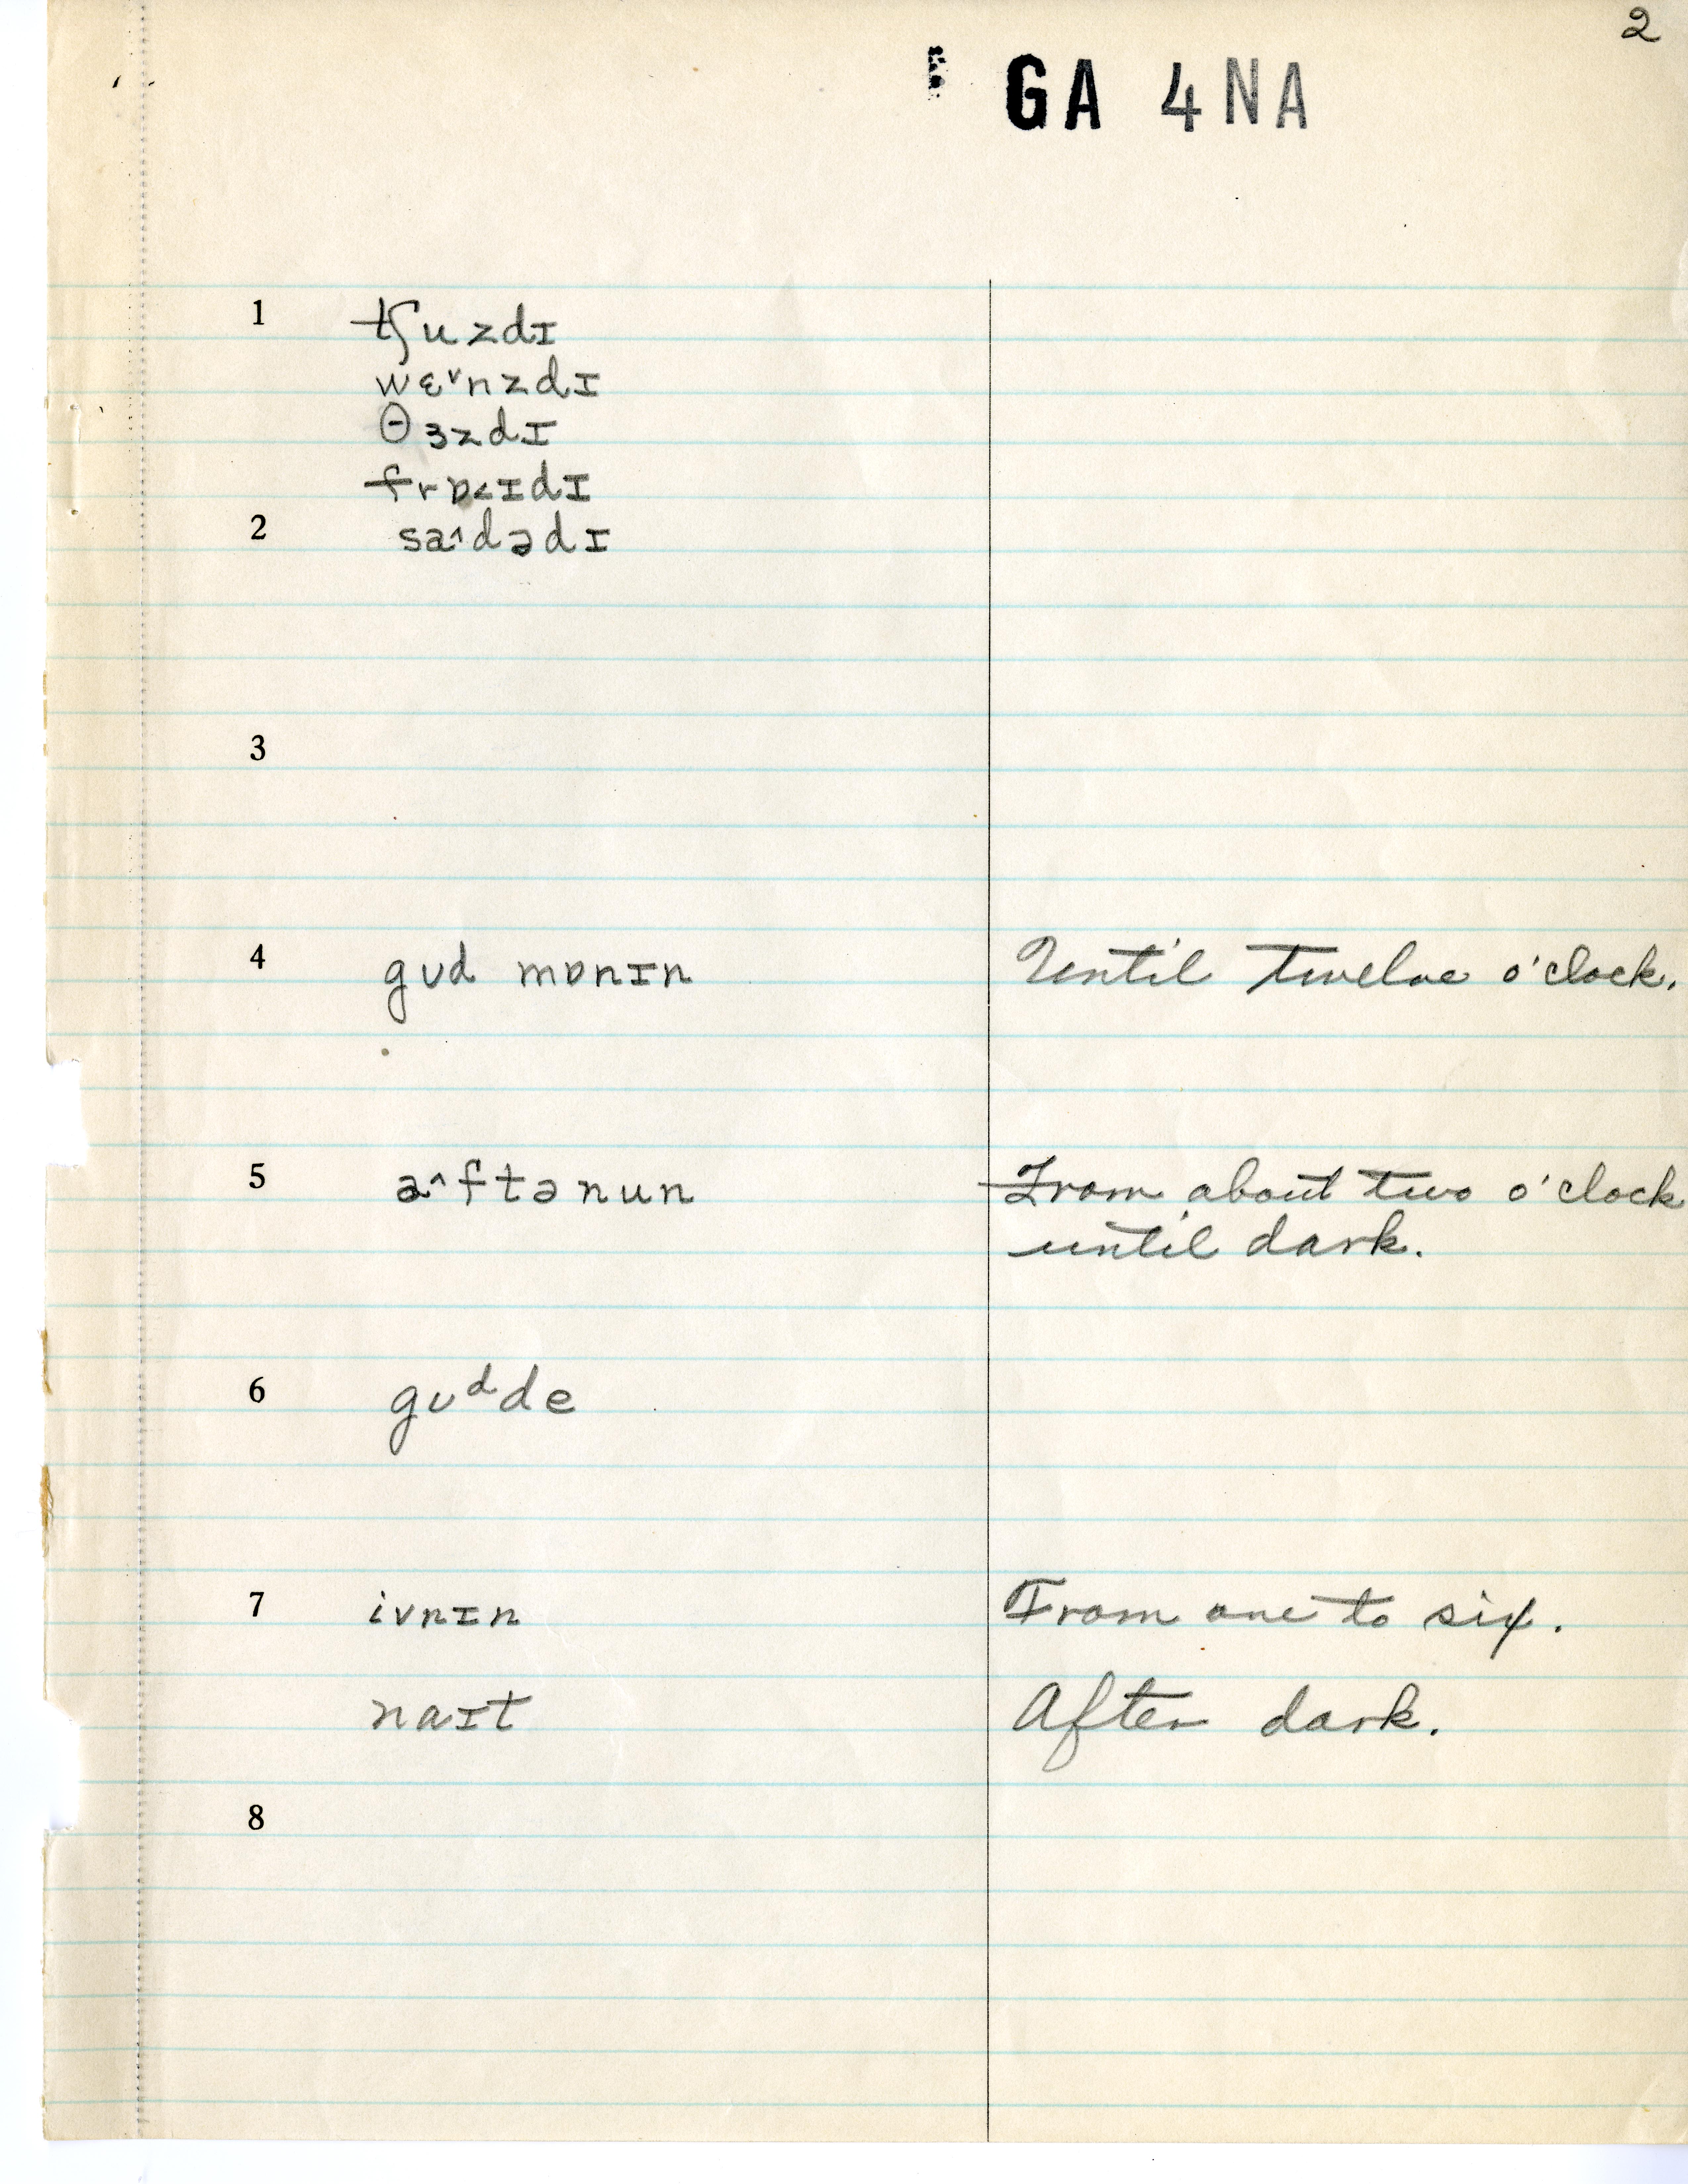 2
GA 4NA
1 tʃuzdɪ
wɛ˅nzdɪ
θɜzdɪ
2 sa˄dədɪ
3
4 gʊd mɒnɪn Until twelve o'clock.
5 a˄ftənun From about two o'clock
until dark.
6 gʊᵈde
7 ivnɪn From one to six.
naɪt After dark.
8